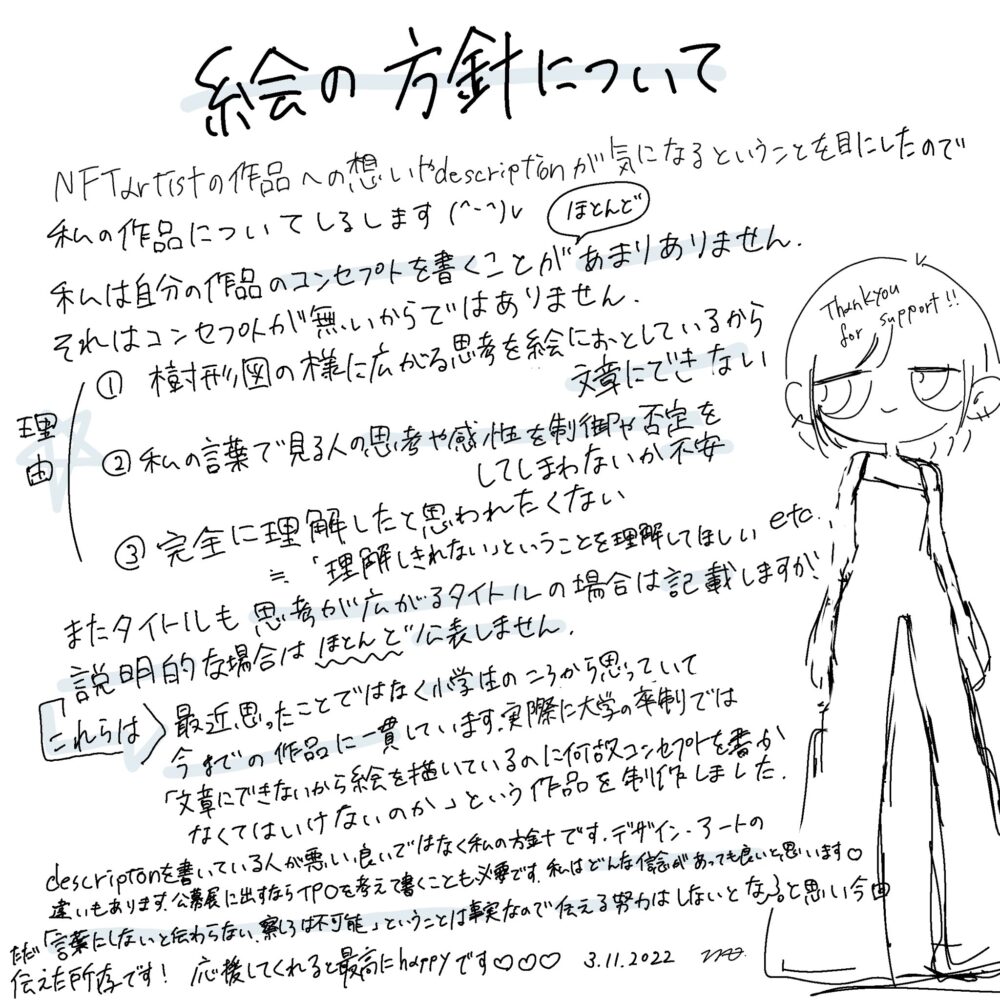 絵の方針について
NFTartistの作品への想いやdescriptonが気になるということを目にしたので
私の作品についてしるします(^-^)v
ほとんど
私は自分の作品のコンセプトを書くことがあまりありません.
それはコンセプトが無いからではありません.
理由
① 樹形図の様に広がる思考を絵におとしているから
文章にできない
② 私の言葉で見る人の思考や感性を制御や否定を
してしまわないか不安
③ 完全に理解したと思われたくない
≒ 「理解しきれない」ということを理解してほしい etc..
またタイトルも思考が広がるタイトルの場合は記載しますが、
説明的な場合はほとんど公表しません.
これらは
最近思ったことではなく小学生のころから思っていて
今までの作品に一貫しています.実際に大学の卒制では
「文章にできないから絵を描いているのに何故コンセプトを書か
なくてはいけないのか」という作品を制作しました.
descriptonを書いている人が悪い,良いではなく私の方針です.デザイン・アートの
違いもあります.公募展に出すならTPOを考えて書くことも必要です.私はどんな信念があっても良いと思います♡
ただ「言葉にしないと伝わらない,察しろは不可能」ということは事実なので伝える努力はしないとなぁと思い今回
伝えた所存です! 応援してくれると最高にhappyです♡♡♡ 3.11.2022
Thankyou
for support!!